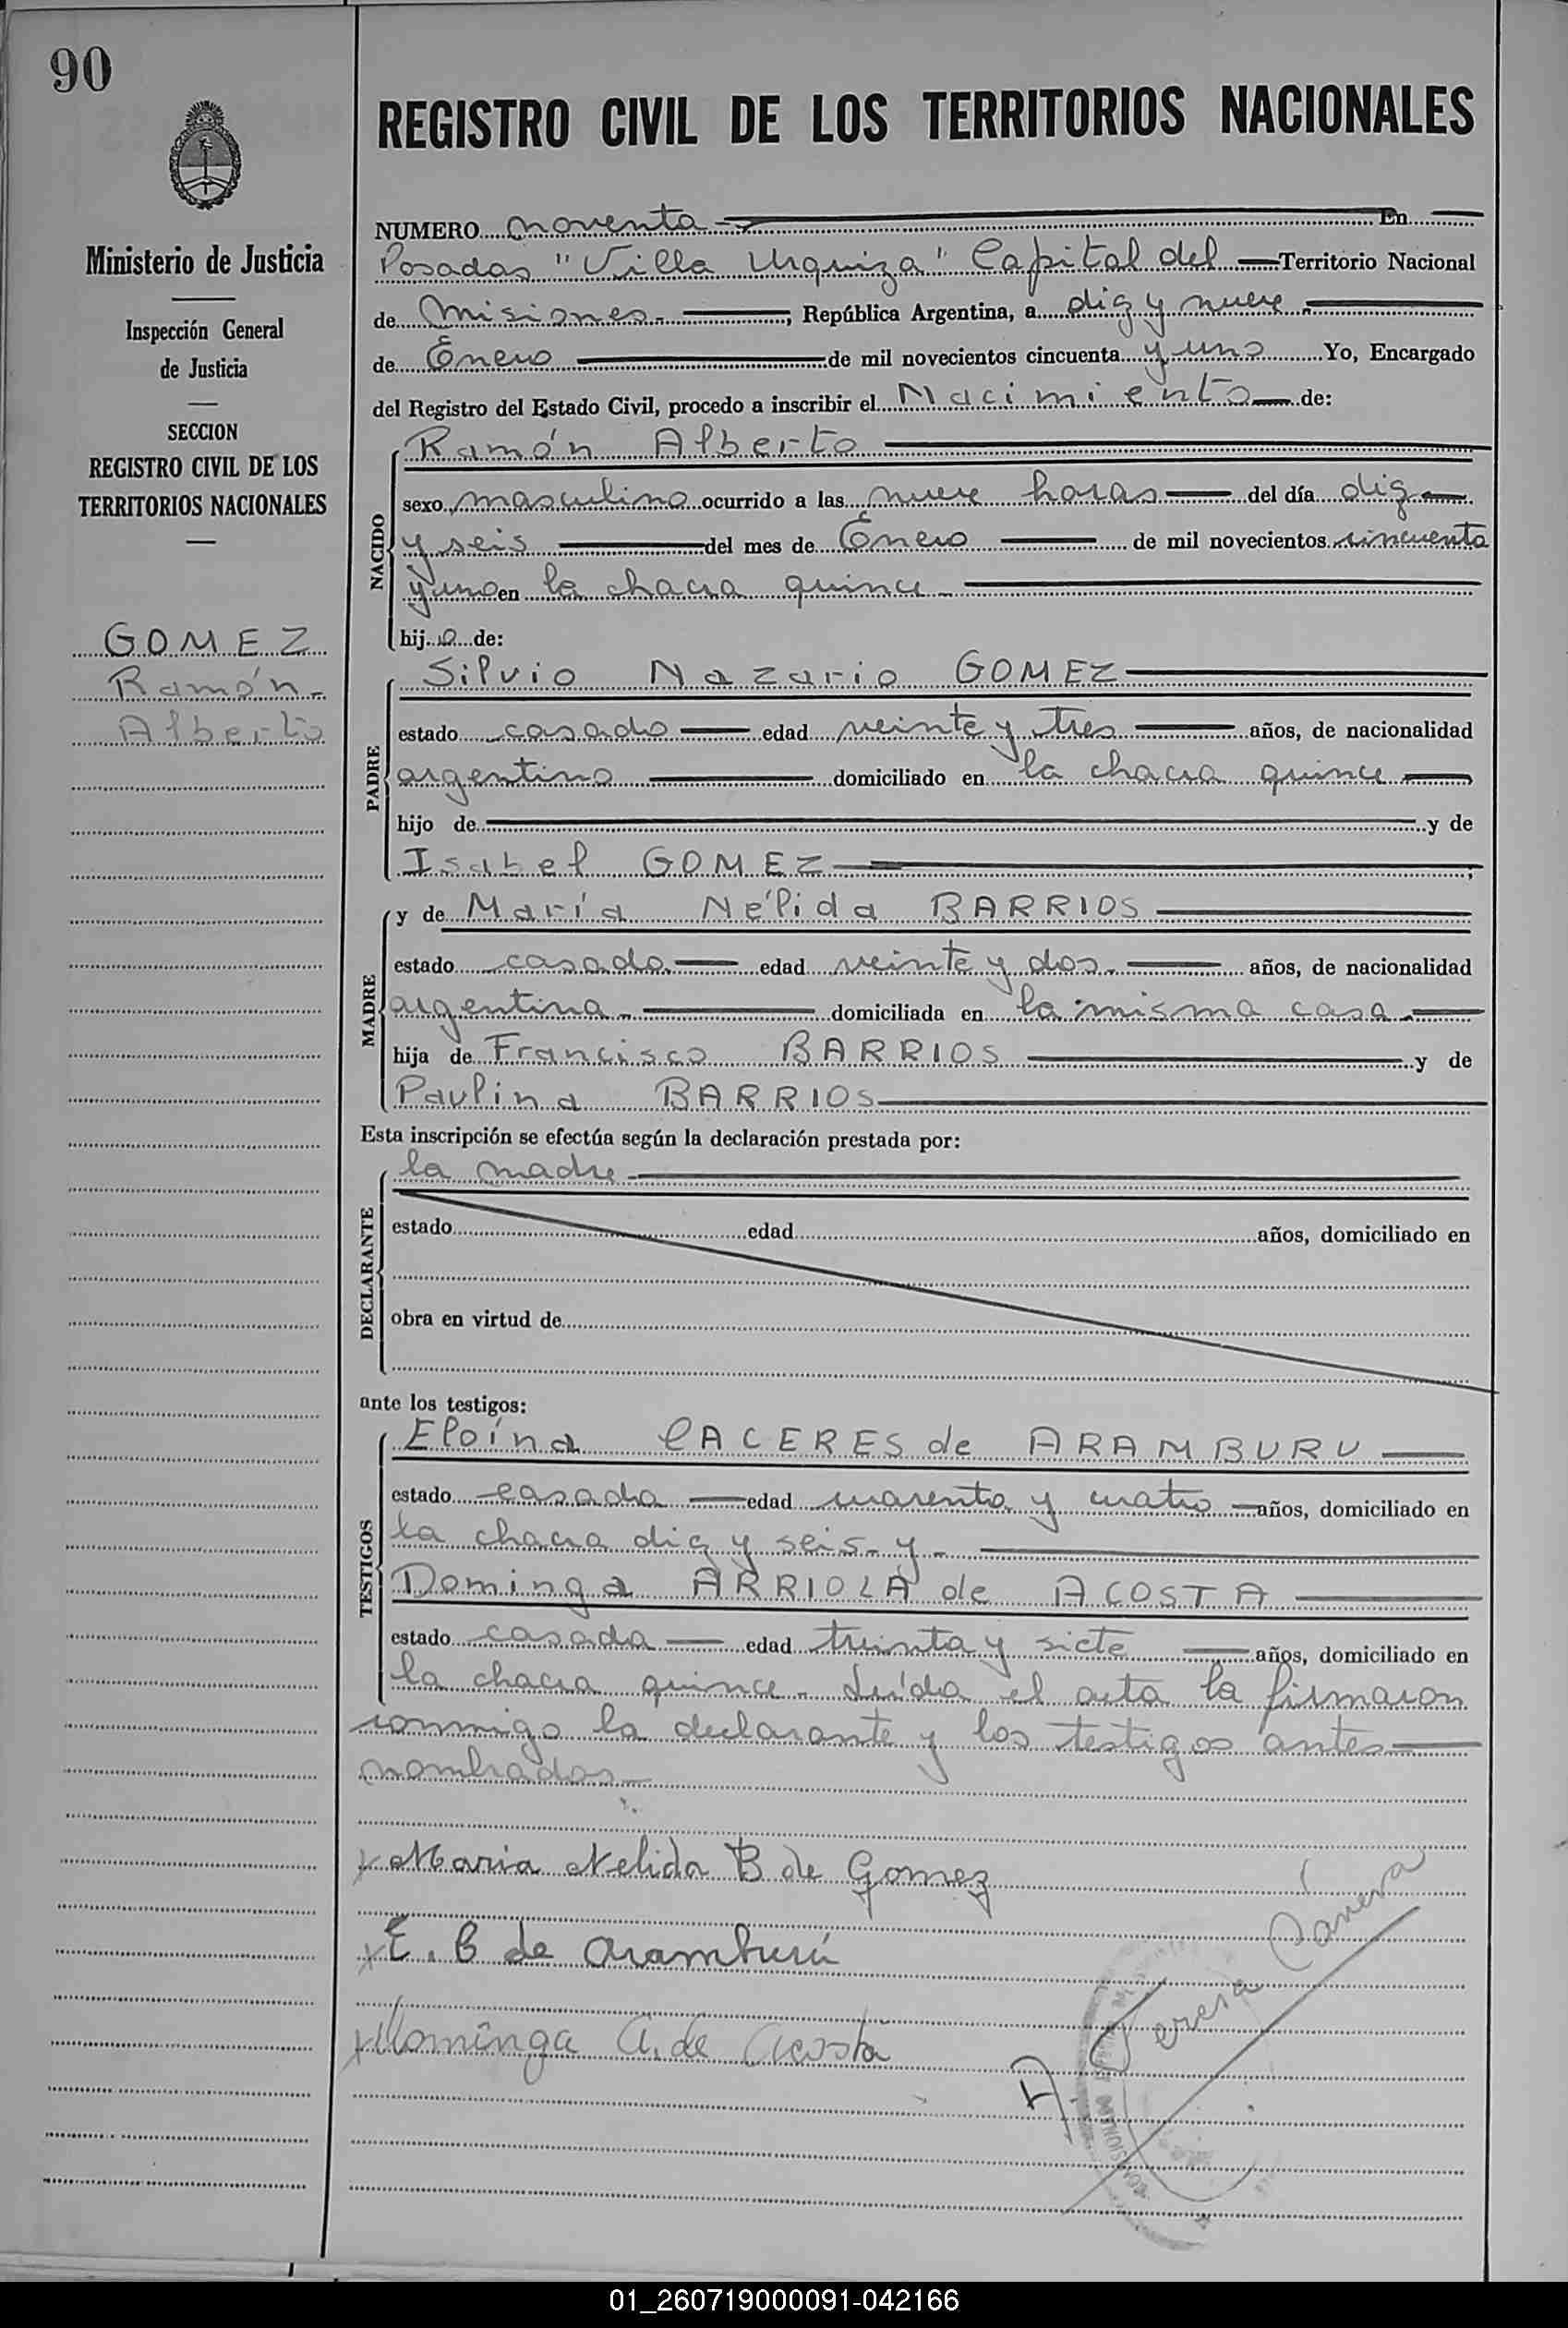 90
REGISTRO CIVIL DE LOS TERRITORIOS NACIONALES
Ministerio de Justicia
Inspección General
de Justicia
SECCION
REGISTRO CIVIL DE LOS
TERRITORIOS NACIONALES
GOMEZ
Ramón
Alberto
NUMERO noventa En
Posadas "Villa Urquiza" Capital del Territorio Nacional
de Misiones, República Argentina, a diez y nueve
de Enero de mil novecientos cincuenta y uno Yo, Encargado
del Registro del Estado Civil, procedo a inscribir el Nacimiento de:
NACIDO
Ramón Alberto
sexo masculino ocurrido a las nueve horas del día diez
y seis del mes de Enero de mil novecientos cincuenta
y uno en la chacra quince
hijo de:
PADRE
Silvio Nazario GOMEZ
estado casado edad veinte y tres años, de nacionalidad
argentino domiciliado en la chacra quince
hijo de y de
Isabel GOMEZ
MADRE
y de María Nélida BARRIOS
estado casada edad veinte y dos años, de nacionalidad
argentina domiciliada en la misma casa
hija de Francisco BARRIOS y de
Paulina BARRIOS
Esta inscripción se efectúa según la declaración prestada por:
DECLARANTE
la madre
estado edad años, domiciliado en
obra en virtud de
ante los testigos:
TESTIGOS
Eloína CACERES de ARAMBURU
estado casada edad cuarenta y cuatro años, domiciliado en
la chacra diez y seis - y -
Dominga ARRIOLA de ACOSTA
estado casada edad treinta y siete años, domiciliado en
la chacra quince - Leída el acta la firmaron
conmigo la declarante y los testigos antes
nombrados
Maria Nelida B de Gomez
E. C de Aramburú
Dominga A. de Acosta
01_260719000091-042166